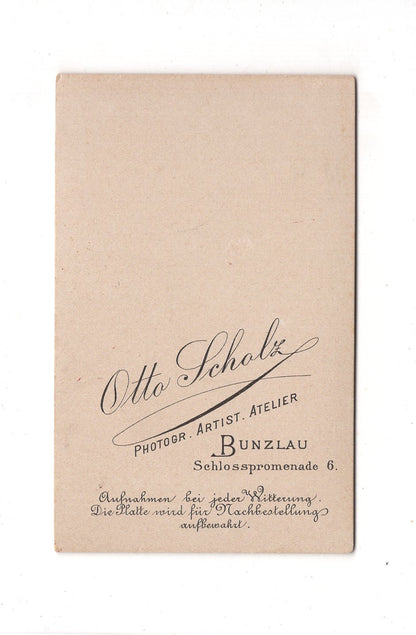 Otto Scholz
PHOTOGR. ARTIST. ATELIER
BUNZLAU
Schlosspromenade 6.
Aufnahmen bei jeder Witterung.
Die Platte wird für Nachbestellung
aufbewahrt.